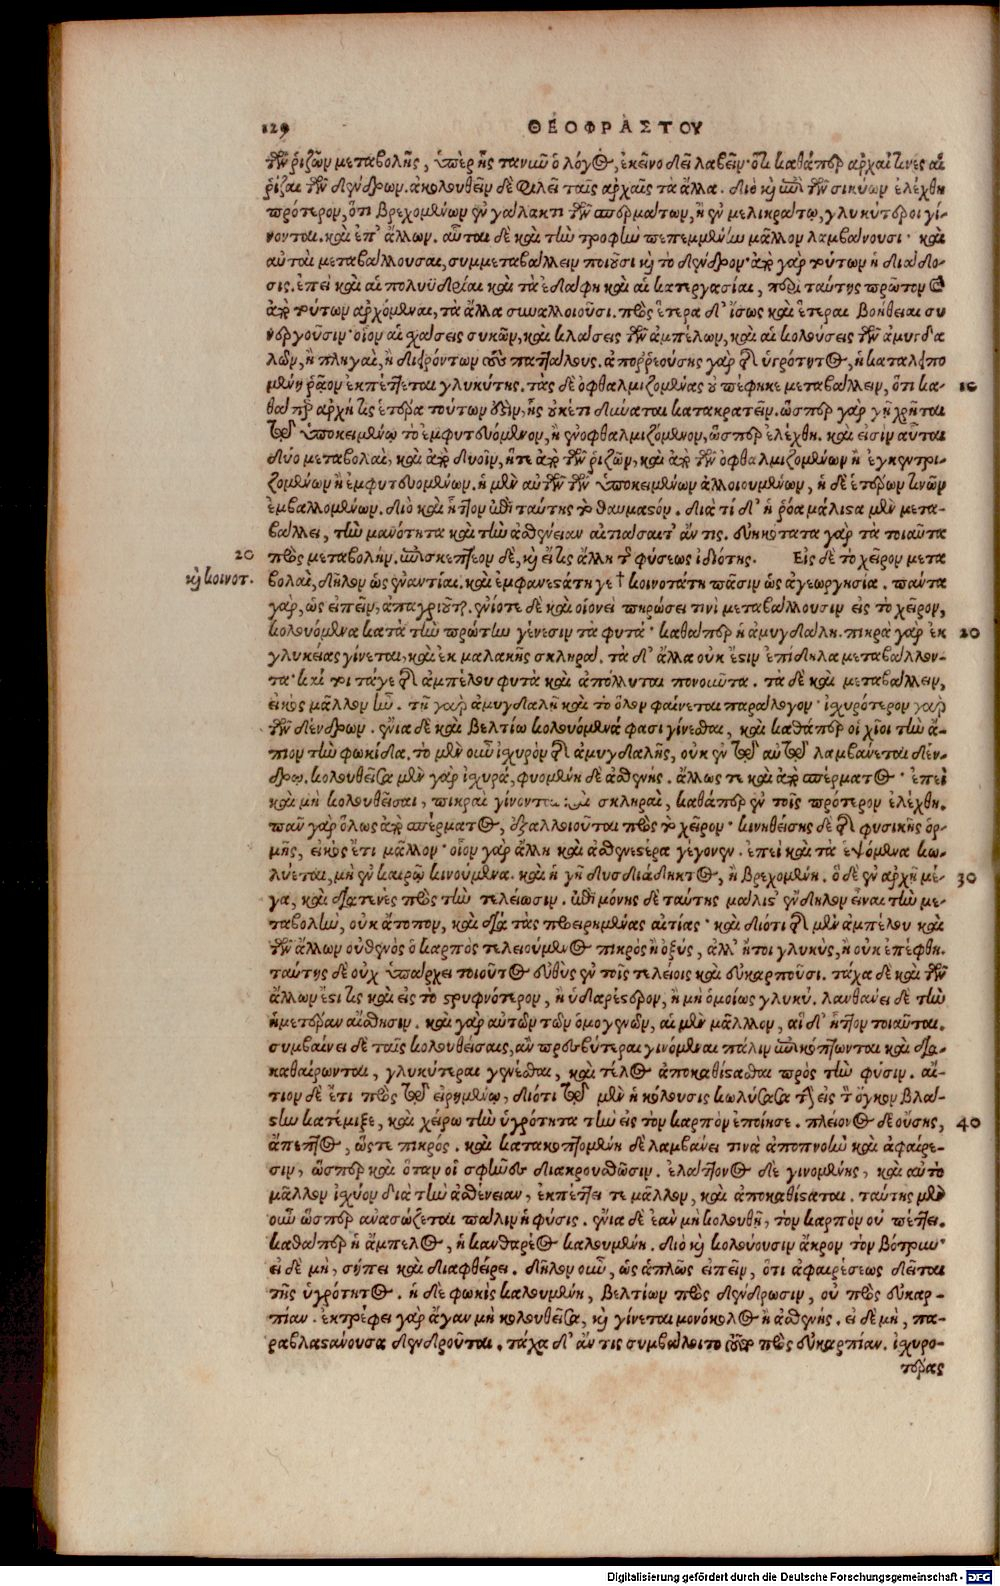 129 ΘΕΟΦΡΑΣΤΟΥ
τῶν ῥιζῶν μεταβολῆς, ὑπὲρ ἧς τανῦν ὁ λόγος, ἐκεῖνο δεῖ λαβεῖν· ὅτι καθάπερ ἀρχαί τινες αἱ
ῥίζαι τῶν δένδρων. ἀκολουθεῖν δὲ φιλεῖ ταῖς ἀρχαῖς τὰ ἄλλα. διὸ καὶ ἐπὶ τῶν σικύων ἐλέχθη
πρότερον, ὅτι βρεχομένων ἐν γάλακτι τῶν σπερμάτων, ἢ ἐν μελικράτῳ, γλυκύτεροι γί-
νονται. καὶ ἐπ' ἄλλων. αὗται δὲ καὶ τὴν τροφὴν πεπεμμένην μᾶλλον λαμβάνουσι· καὶ
αὐταὶ μεταβάλλουσαι, συμμεταβάλλειν ποιοῦσι καὶ τὸ δένδρον· ἀπὸ γὰρ τούτων ἡ διάδο-
σις. ἐπεὶ καὶ αἱ πολυϋδρίαι καὶ τὰ ἐδάφη καὶ αἱ κατεργασίαι, περὶ ταύτης πρῶτον
ἀπὸ τούτων ἀρχόμεναι, τὰ ἄλλα συναλλοιοῦσι. πρὸς ἕτερα δ' ἴσως καὶ ἕτεραι βοήθειαι συ
νεργοῦσιν· οἷον αἱ σχάσεις συκῶν, καὶ κλάσεις τῶν ἀμπέλων, καὶ αἱ κολούσεις τῶν ἀμυγδα
λῶν, ἢ πληγαὶ, ἢ διείροντων τοὺς παττάλους. ἀπορρεούσης γὰρ τῆς ὑγρότητος, ἡ καταλειπο
μένη ῥᾷον ἐκπέττεται γλυκύτης. τὰς δὲ ὀφθαλμιζομένας οὐ πέφηκε μεταβάλλειν, ὅτι κα- 10
θάπερ ἀρχή τις ἑτέρα τούτων ἐστὶν, ἧς οὐκέτι δύναται κατακρατεῖν. ὥσπερ γὰρ γῇ χρῆται
τῷ ὑποκειμένῳ τὸ ἐμφυτευόμενον, ἢ ἐνοφθαλμιζόμενον, ὥσπερ ἐλέχθη. καὶ εἰσὶν αὗται
δύο μεταβολαὶ, καὶ ἀπὸ δυοῖν, ἥτε ἀπὸ τῶν ῥιζῶν, καὶ ἀπὸ τῶν ὀφθαλμιζομένων ἢ ἐγκεντρι-
ζομένων ἢ ἐμφυτευομένων. ἡ μὲν αὐτῶν τῶν ὑποκειμένων ἀλλοιουμένων, ἡ δὲ ἑτέρων τινῶν
ἐμβαλλομένων. διὸ καὶ ἧττον ἐπὶ ταύτης τὸ θαυμαστόν. διὰ τί δ' ἡ ῥόα μάλιστα μὲν μετα-
βάλλει, τὴν μανότητα καὶ τὴν ἀσθένειαν αἰτιάσαιτ' ἄν τις. εὐκινητότατα γὰρ τὰ τοιαῦτα
20 πρὸς μεταβολήν. ἐπισκεπτέον δὲ, καὶ εἴ τις ἄλλη τῆς φύσεως ἰδιότης. Εἰς δὲ τὸ χεῖρον μετα
καὶ κοινοτ. βολαὶ, δῆλον ὡς ἐναντίαι. καὶ ἐμφανεστάτη γε † κοινοτάτη πᾶσιν ὡς ἀγεωργησία. πάντα
γὰρ, ὡς εἰπεῖν, ἀπαγριοῦται. ἐνίοτε δὲ καὶ οἱονεὶ πηρώσει τινὶ μεταβάλλουσιν εἰς τὸ χεῖρον,
κολουόμενα κατὰ τὴν πρώτην γένεσιν τὰ φυτά· καθάπερ ἡ ἀμυγδάλη. πικρὰ γὰρ ἐκ 20
γλυκείας γίνεται, καὶ ἐκ μαλακῆς σκληρά. τὰ δ' ἄλλα οὐκ ἔστιν ἐπίδηλα μεταβάλλον-
τα· καί τοι τάγε τῆς ἀμπέλου φυτὰ καὶ ἀπόλλυται πονοῦντα. τὰ δὲ καὶ μεταβάλλειν,
εἰκὸς μᾶλλον ἦν. τῇ γὰρ ἀμυγδαλῇ καὶ τὸ ὅλον φαίνεται παράλογον· ἰσχυρότερον γὰρ
τῶν δένδρων. ἔνια δὲ καὶ βελτίω κολουόμενά φασι γίνεσθαι, καὶ καθάπερ οἱ χῖοι τὴν ἄ-
πιον τὴν φωκίδα. τὸ μὲν οὖν ἰσχυρὸν τῆς ἀμυγδαλῆς, οὐκ ἐν τῷ αὐτῷ λαμβάνεται δέν-
δρῳ. κολουθεῖσα μὲν γὰρ ἰσχυρά, φυομένη δὲ ἀσθενής. ἄλλως τε καὶ ἀπὸ σπέρματος· ἐπεὶ
καὶ μὴ κολουθεῖσαι, πικραὶ γίνονται καὶ σκληραὶ, καθάπερ ἐν τοῖς πρότερον ἐλέχθη.
πᾶν γὰρ ὅλως ἀπὸ σπέρματος, ἐξαλλοιοῦται πρὸς τὸ χεῖρον· κινηθείσης δὲ τῆς φυσικῆς ὁρ-
μῆς, εἰκὸς ἔτι μᾶλλον· οἷον γὰρ ἄλλη καὶ ἀσθενεστέρα γέγονεν. ἐπεὶ καὶ τὰ ἑψόμενα κω-
λύεται, μὴ ἐν καιρῷ κινούμενα. καὶ ἡ γῆ δυσδιάδηκτος, ἢ βρεχομένη. ὁ δὲ ἐν ἀρχῇ μέ- 30
γα, καὶ διατενὲς πρὸς τὴν τελείωσιν. ἐπὶ μόνης δὲ ταύτης μάλιστ' ἔνδηλον εἶναι τὴν με-
ταβολὴν, οὐκ ἄτοπον, καὶ διὰ τὰς προειρημένας αἰτίας· καὶ διότι τῆς μὲν ἀμπέλου καὶ
τῶν ἄλλων οὐθενὸς ὁ καρπὸς τελειούμενος πικρὸς ἢ ὀξὺς, ἀλλ' ἤτοι γλυκὺς, ἢ οὐκ ἐπέφθη.
ταύτης δὲ οὐχ ὑπάρχει τοιοῦτος εὐθὺς ἐν τοῖς τελείοις καὶ εὐκαρποῦσι. τάχα δὲ καὶ τῶν
ἄλλων ἐστί τις καὶ εἰς τὸ στρυφνότερον, ἢ ὑδαρέστερον, ἢ μὴ ὁμοίως γλυκύ. λανθάνει δὲ τὴν
ἡμετέραν αἴσθησιν. καὶ γὰρ αὐτῶν τῶν ὁμογενῶν, αἱ μὲν μᾶλλον, αἱ δ' ἧττον τοιαῦται.
συμβαίνει δὲ ταῖς κολουθείσαις, ἂν πρεσβύτεραι γινόμεναι πάλιν ἐπικόπτωνται καὶ δια-
καθαίρωνται, γλυκύτεραι γενέσθαι, καὶ τέλος ἀποκαθίστασθαι πρὸς τὴν φύσιν. αἴ-
τιον δὲ ἔτι πρὸς τῷ εἰρημένῳ, διότι τῷ μὲν ἡ κόλουσις κωλύσασα τὴν εἰς τὸν ὄγκον βλά-
στην κατέμιξε, καὶ χείρω τὴν ὑγρότητα τὴν εἰς τὸν καρπὸν ἐποίησε. πλείονος δὲ οὔσης, 40
ἄπεπτος, ὥστε πικρός. καὶ κατακοπτομένη δὲ λαμβάνει τινὰ ἀποπνοὴν καὶ ἀφαίρε-
σιν, ὥσπερ καὶ ὅταν οἱ σφῆνες διακρουσθῶσιν. ἐλάττονος δὲ γινομένης, καὶ αὐτὸ
μᾶλλον ἰσχύον διὰ τὴν ἀσθένειαν, ἐκπέττει τε μᾶλλον, καὶ ἀποκαθίσταται. ταύτης μὲν
οὖν ὥσπερ ἀνασώζεται πάλιν ἡ φύσις. ἔνια δὲ ἐὰν μὴ κολουθῇ, τὸν καρπὸν οὐ πέττει.
καθάπερ ἡ ἄμπελος, ἡ κανθάρεος καλουμένη. διὸ καὶ κολούουσιν ἄκρον τὸν βότρυν·
εἰ δὲ μὴ, σήπει καὶ διαφθείρει. δῆλον οὖν, ὡς ἁπλῶς εἰπεῖν, ὅτι ἀφαιρέσεως δεῖται
τῆς ὑγρότητος. ἡ δὲ φωκὶς καλουμένη, βελτίων πρὸς δένδρωσιν, οὐ πρὸς εὐκαρ-
πίαν. ἐκτρέφει γὰρ ἄγαν μὴ κολουθεῖσα, καὶ γίνεται μονόκολος ἢ ἀσθενής. εἰ δὲ μὴ, πα-
ραβλαστάνουσα δενδροῦται. τάχα δ' ἄν τις συμβάλοιτο τοῦτο πρὸς εὐκαρπίαν. ἰσχυρο-
τέρας
Digitalisierung gefördert durch die Deutsche Forschungsgemeinschaft - DFG